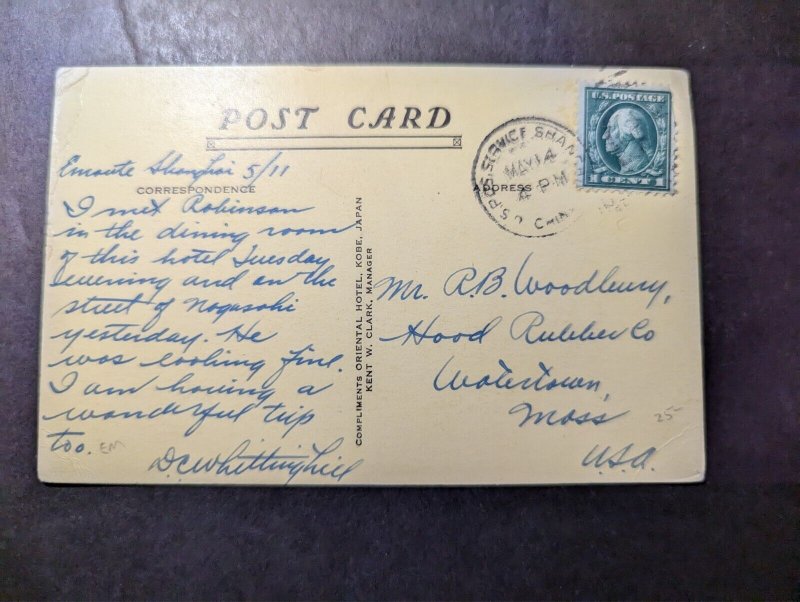 POST CARD
Enroute Shanghai 5/11
CORRESPONDENCE
I met Robinson
in the dining room
of this hotel Tuesday
evening and on the
street of Nagasaki
yesterday. He
was looking fine.
I am having a
wonderful trip
too. EM
D.C. Whittinghill
COMPLIMENTS ORIENTAL HOTEL, KOBE, JAPAN
KENT W. CLARK, MANAGER
ADDRESS
U.S. POSTAGE
1 CENT 1
U.S. POS. SERVICE SHANG
MAY 14
PM
CHINA
Mr. R.B. Woodbury,
Hood Rubber Co
Watertown,
Mass
25-
U.S.A.